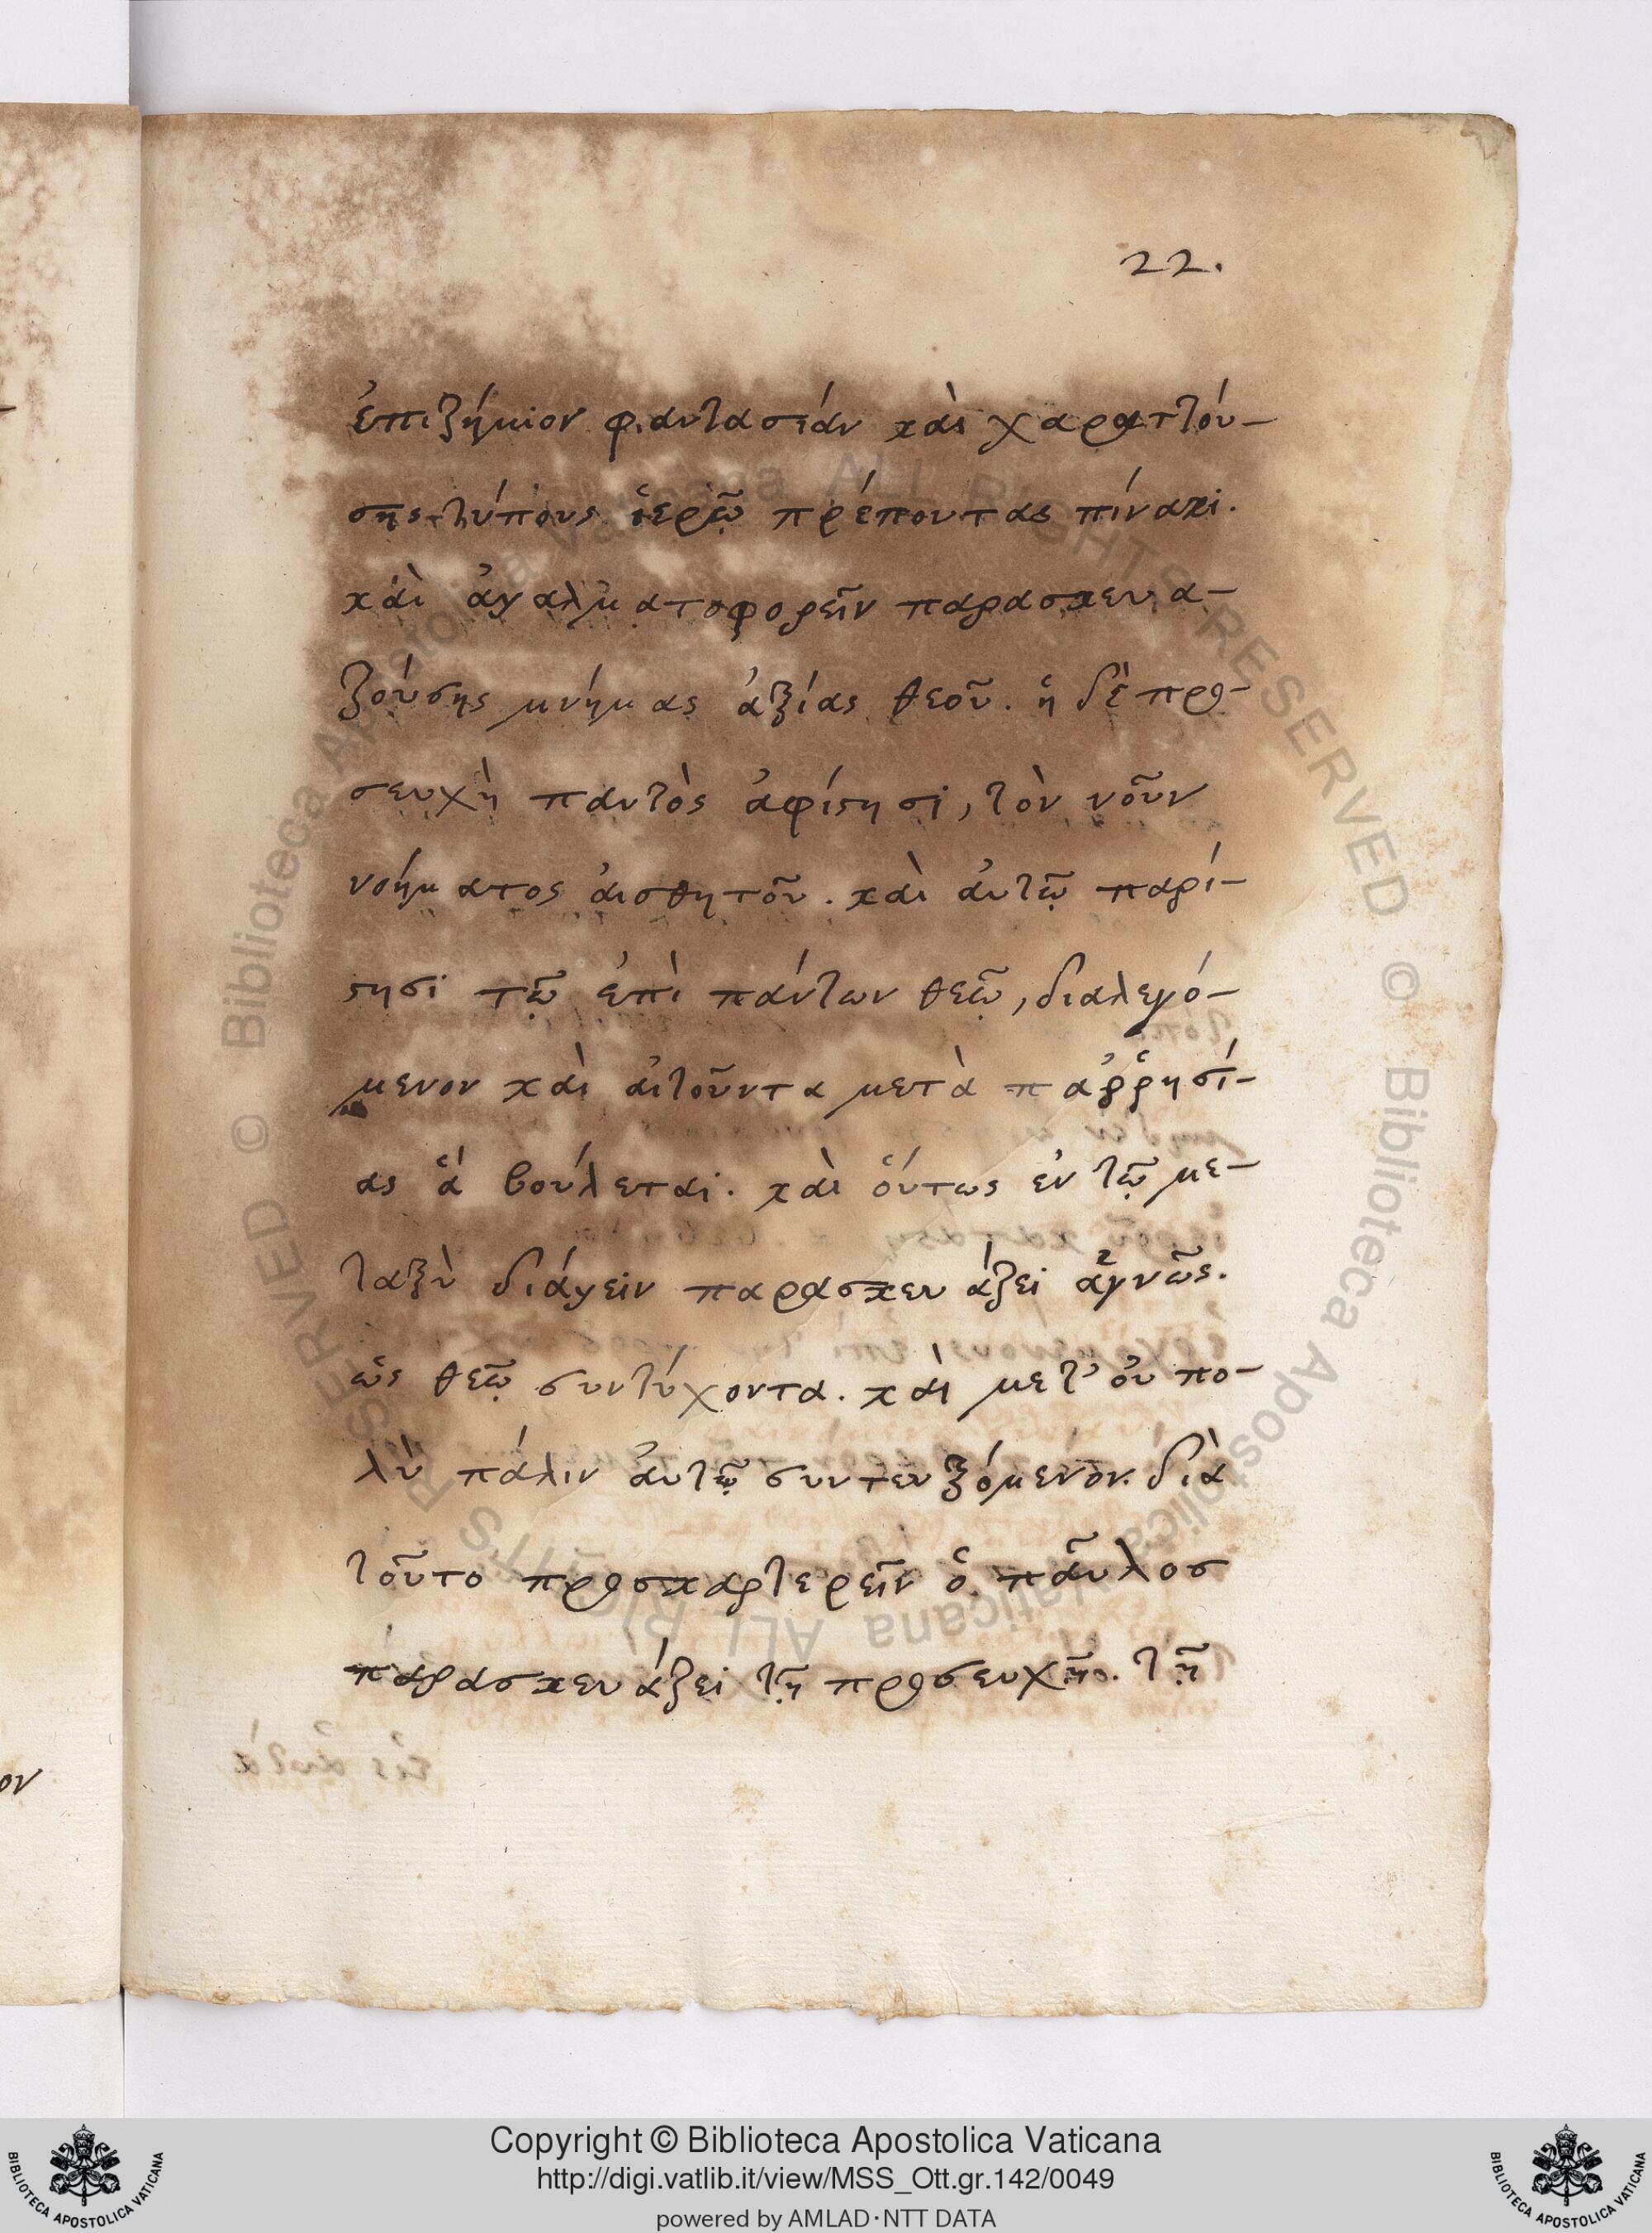 22.
ἐπιζήμιον φαντασιάν καὶ χαραττόυ-
σης τύπους ἱερῷ πρέποντας πίνακι.
καὶ ἀγαλματοφορεῖν παρασκευα-
ζόυσης μνήμας ἀξίας θεοῦ. ἡ δὲ προ-
σευχὴ παντὸς ἀφίστησι, τὸν νοῦν
νοήματος ἀισθητοῦ. καὶ ἀυτῷ παρί-
στησι τῷ ἐπὶ πάντων θεῷ, διαλεγό-
μενον καὶ ἀιτοῦντα μετὰ παῤῥησί-
ας ἅ βούλεται. καὶ ὅυτως ἐν τῷ με-
ταξὺ διάγειν παρασκευάζει ἁγνῶς.
ὡς θεῷ συντύχοντα. καὶ μετ' ὀυ πο-
λὺ πάλιν ἀυτῷ συντευξόμενον. διὰ
τοῦτο προσκαρτερεῖν ὁ παῦλοσ
παρασκευάζει τῇ προσευχῇ. τῇ
ον
Copyright © Biblioteca Apostolica Vaticana
http://digi.vatlib.it/view/MSS_Ott.gr.142/0049
powered by AMLAD·NTT DATA
BIBLIOTECA APOSTOLICA VATICANA
BIBLIOTECA APOSTOLICA VATICANA
© Biblioteca Apostolica Vaticana ALL RIGHTS RESERVED
© Biblioteca Apostolica Vaticana ALL RIGHTS RESERVED